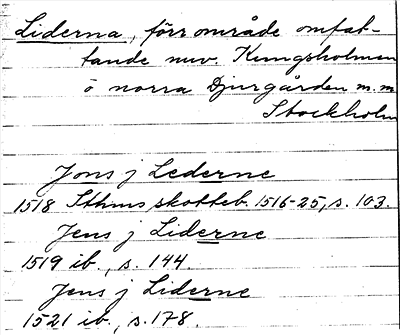 Liderna, förr område omfat-
tande nuv. Kungsholmen
o norra Djurgården m.m
Stockholm
Jons j Lederne
1518 Sthms skotteb. 1516-25, s. 103.
Jens j Liderne
1519 ib., s. 144.
Jens j Liderne
1521 ib., s. 178.